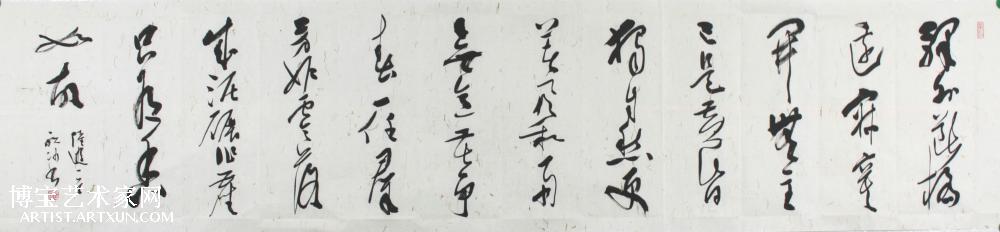 驿外断桥
边寂寞
开无主
已是黄昏
独自愁更
著风和雨
无意苦争
春一任群
芳妒零落
成泥碾作尘
只有香
如故
陆游
博宝艺术家网
ARTIST.ARTXUN.COM